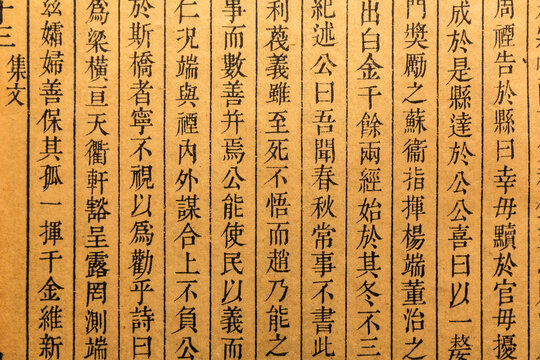 周禋告於縣曰幸毋黷於官毋擾
成於是縣達於公公喜曰以一嫠
門奬勵之蘇衞指揮楊端董治之
出白金千餘兩經始於其冬不三
紀述公曰吾聞春秋常事不書此
利蔑義雖至死不悟而趙乃能之
事而數善并焉公能使民以義而
仁况端與禋內外謀合上不負公
於斯橋者寧不視以爲勸乎詩曰
爲梁橫亘天衢軒豁呈露罔測端
兹孀婦善保其孤一揮千金維新
十三 集文